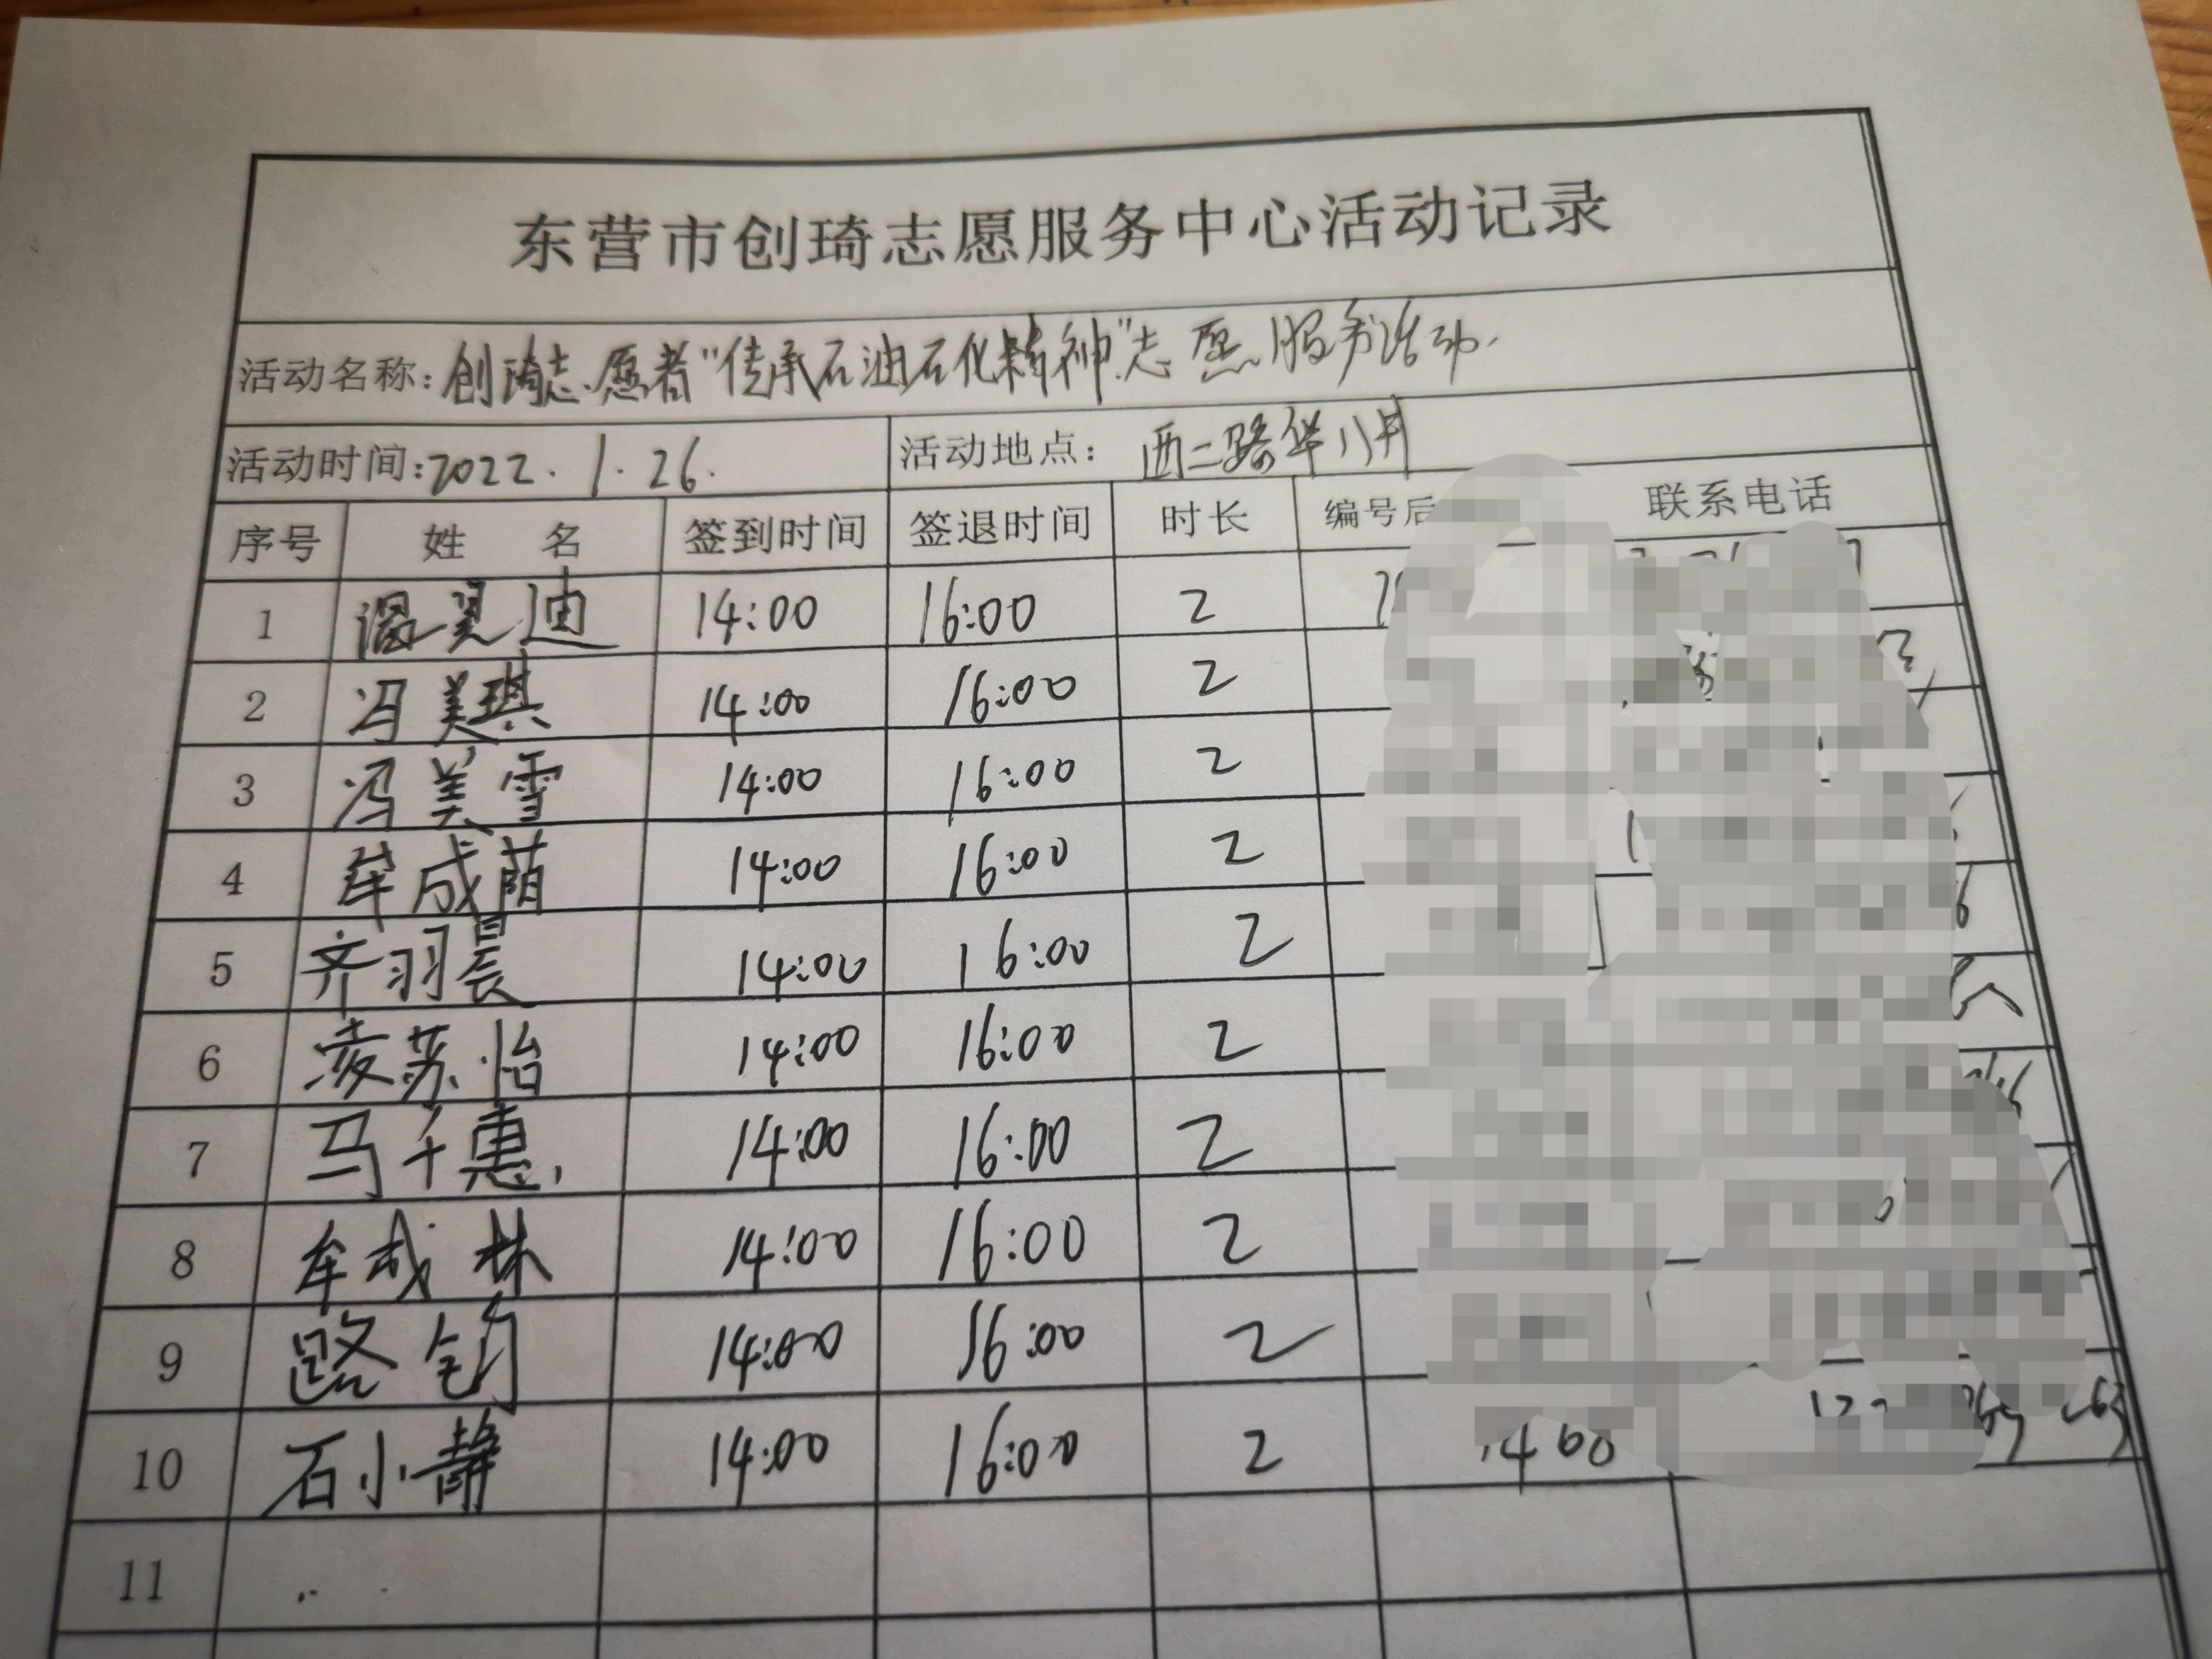 东营市创琦志愿服务中心活动记录
活动名称：创琦志愿者"传承石油石化精神"志愿服务活动.
活动时间：2022.1.26. 活动地点： 西二路华八井
序号 姓 名 签到时间 签退时间 时长 编号后 联系电话
1 温翼迪 14:00 16:00 2
2 冯美琪 14:00 16:00 2
3 冯美雪 14:00 16:00 2
4 牟成荫 14:00 16:00 2
5 齐羽晨 14:00 16:00 2
6 凌苏怡 14:00 16:00 2
7 马千惠 14:00 16:00 2
8 牟成林 14:00 16:00 2
9 路钧 14:00 16:00 2
10 石小静 14:00 16:00 2 460
11